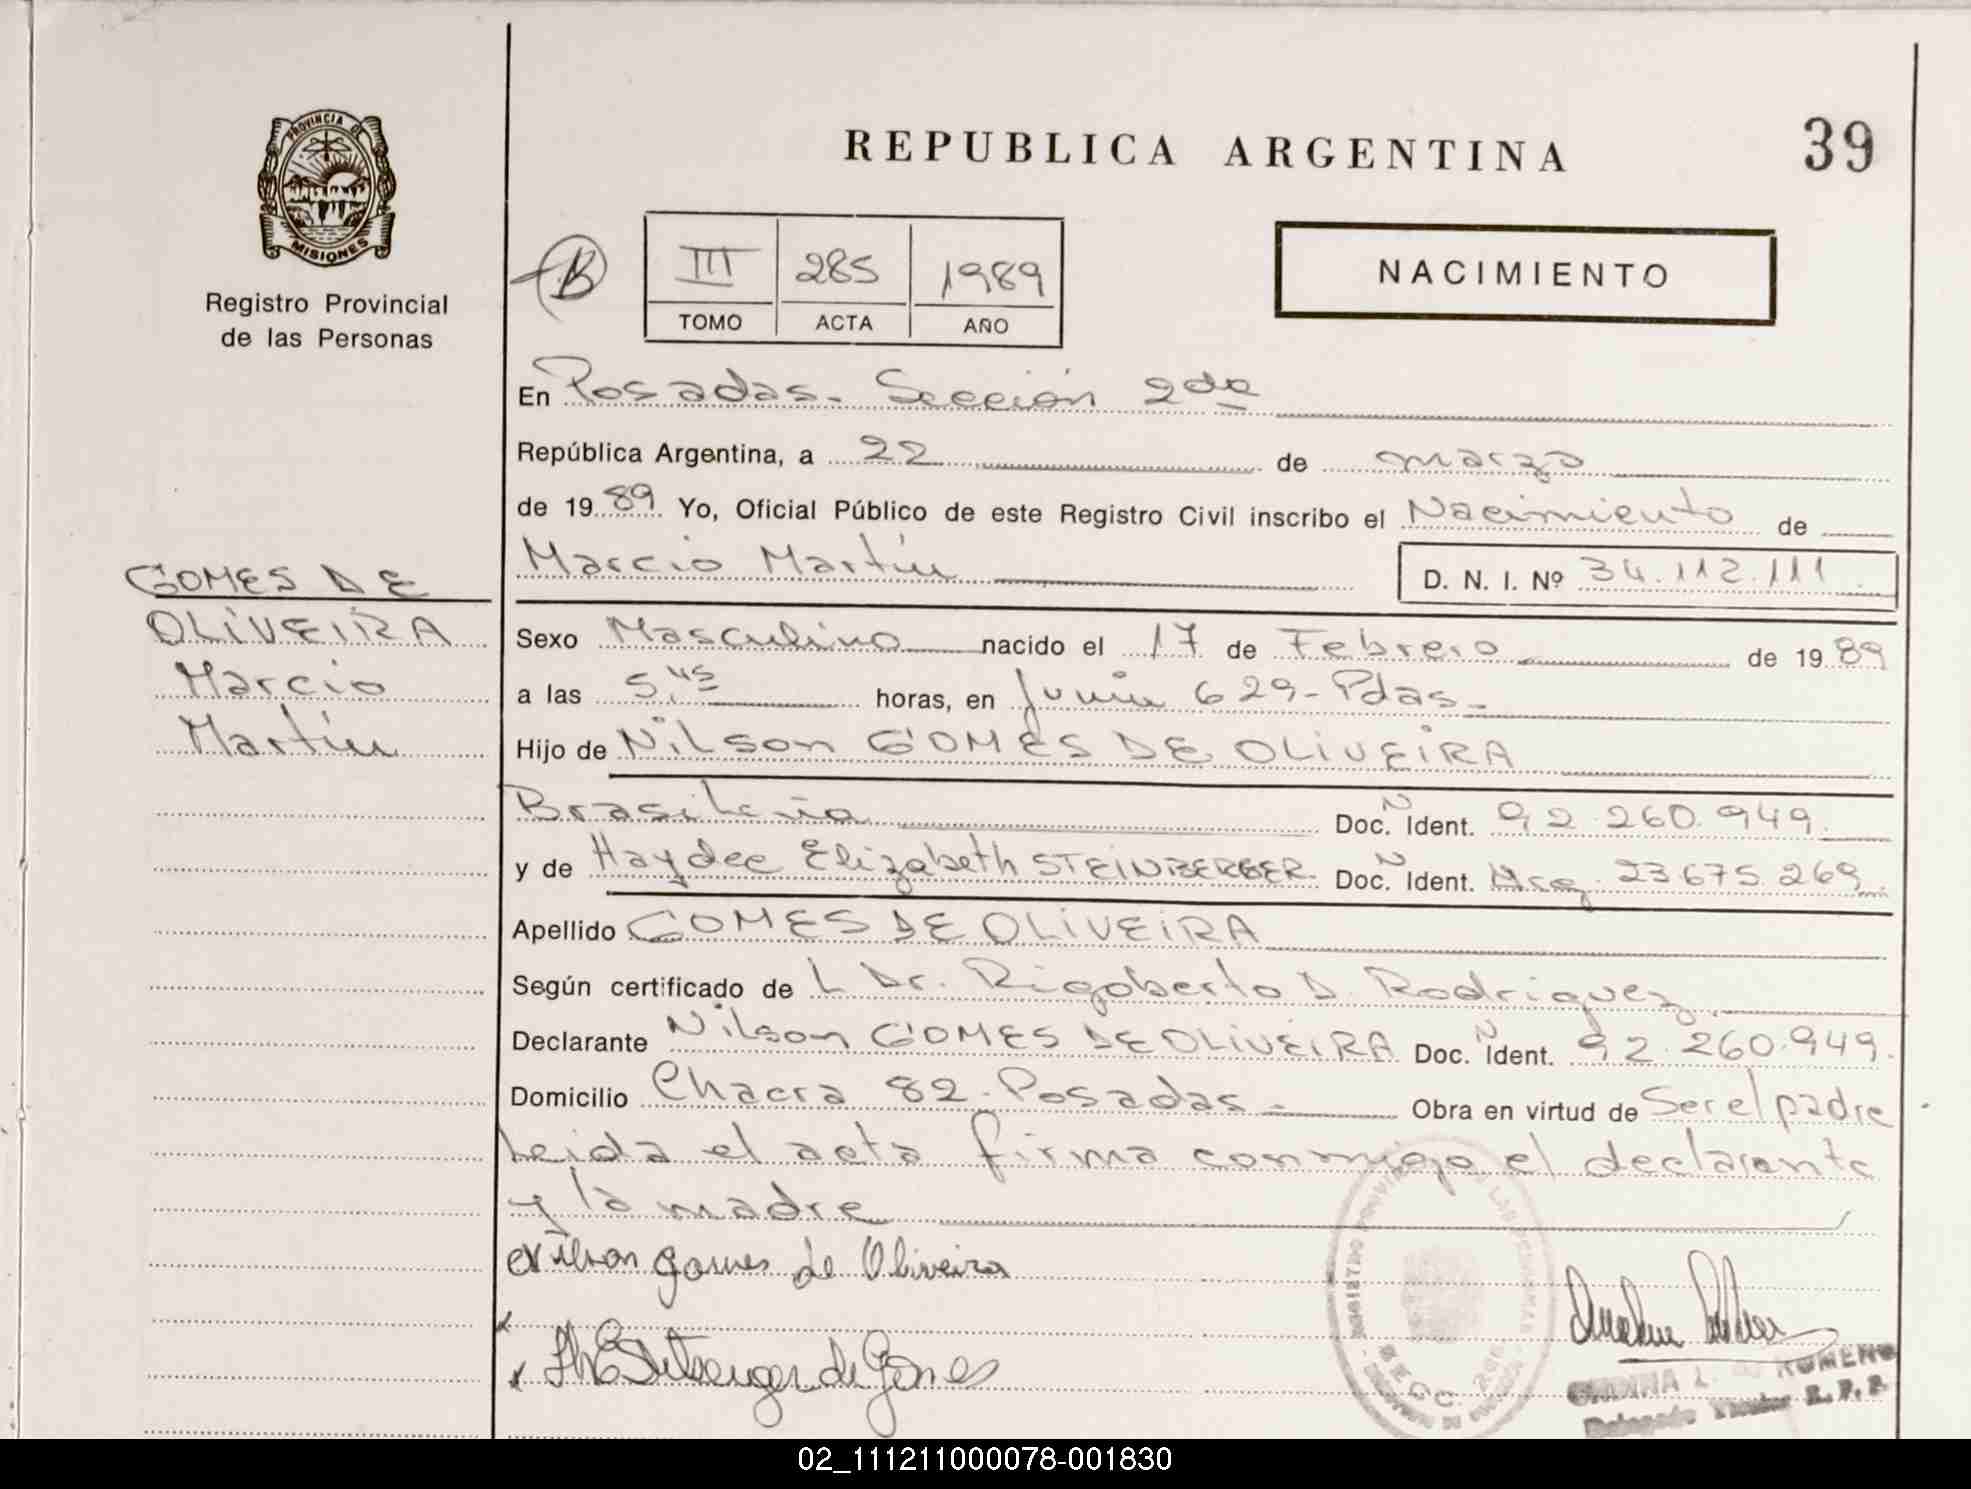 REPUBLICA ARGENTINA
39
PROVINCIA DE
MISIONES
Registro Provincial
de las Personas
B
III 285 1989
TOMO ACTA AÑO
NACIMIENTO
En Posadas - Sección 2da
República Argentina, a 22 de marzo
de 1989 Yo, Oficial Público de este Registro Civil inscribo el Nacimiento de
Marcio Martín D. N. I. Nº 34.112.111
GOMES DE
OLIVEIRA
Marcio
Martín
Sexo Masculino nacido el 17 de Febrero de 1989
a las 5,45 horas, en Junín 629 - Pdas.
Hijo de Nilson GOMES DE OLIVEIRA
Doc. Ident. 92.260.949.
y de Haydee Elizabeth STEINBERGER Doc. Ident. 23675.269
Apellido GOMES DE OLIVEIRA
Según certificado de L Dr. Rigoberto D. Rodriguez
Declarante Nilson GOMES DE OLIVEIRA Doc. Ident. 92.260.949.
Domicilio Chacra 82 - Posadas - Obra en virtud de Ser el padre
Leida el acta firma conmigo el declarante
y la madre
Nilson Gomes de Oliveira
de Gomes
02_111211000078-001830